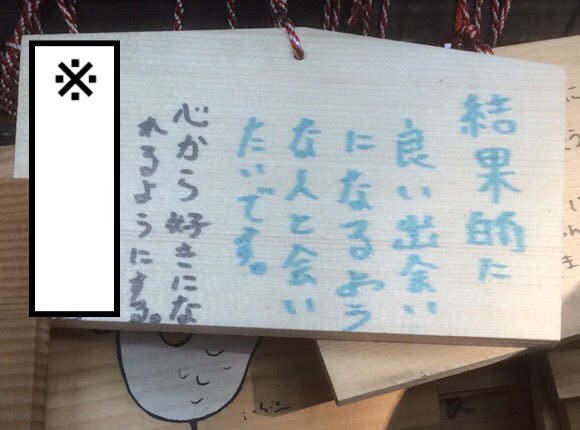 結果的に
良い出会い
になるよう
な人と会い
たいです。
心から好きにな
れるようにする。
※